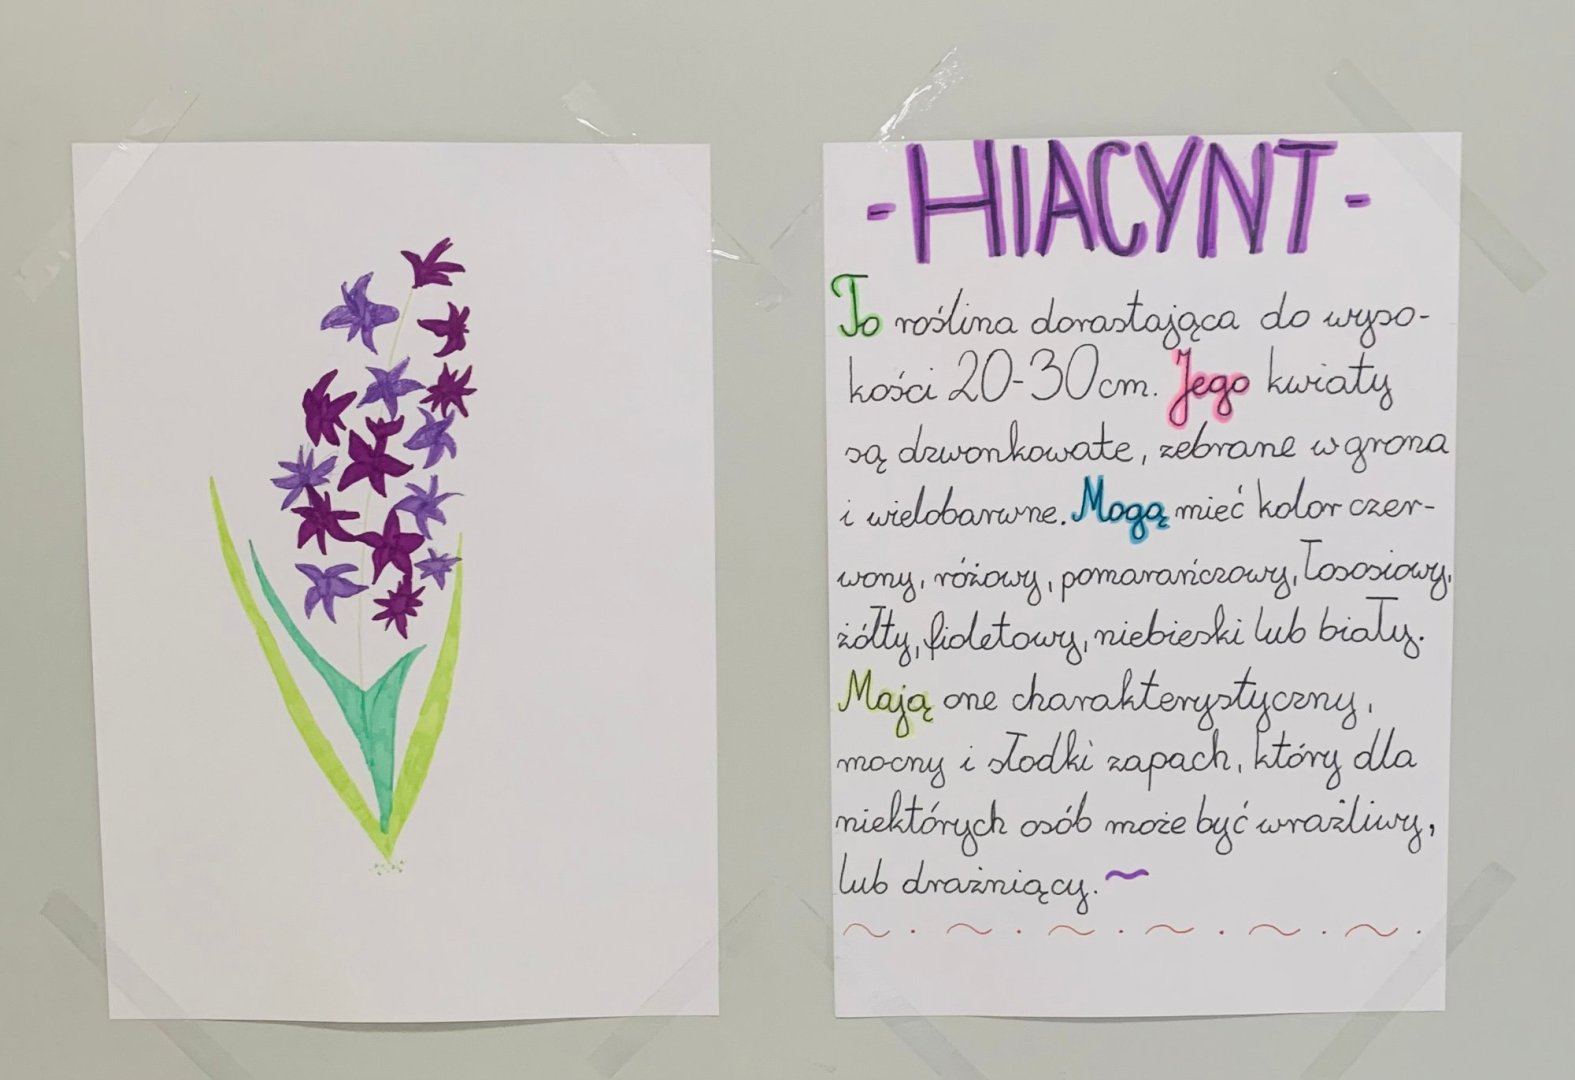 - HIACYNT -
To roślina dorastająca do wyso-
kości 20-30cm. Jego kwiaty
są dzwonkowate, zebrane w grona
i wielobarwne. Mogą mieć kolor czer-
wony, różowy, pomarańczowy, łososiowy,
żółty, fioletowy, niebieski lub biały.
Mają one charakterystyczny,
mocny i słodki zapach, który dla
niektórych osób może być wrażliwy,
lub drażniący.~